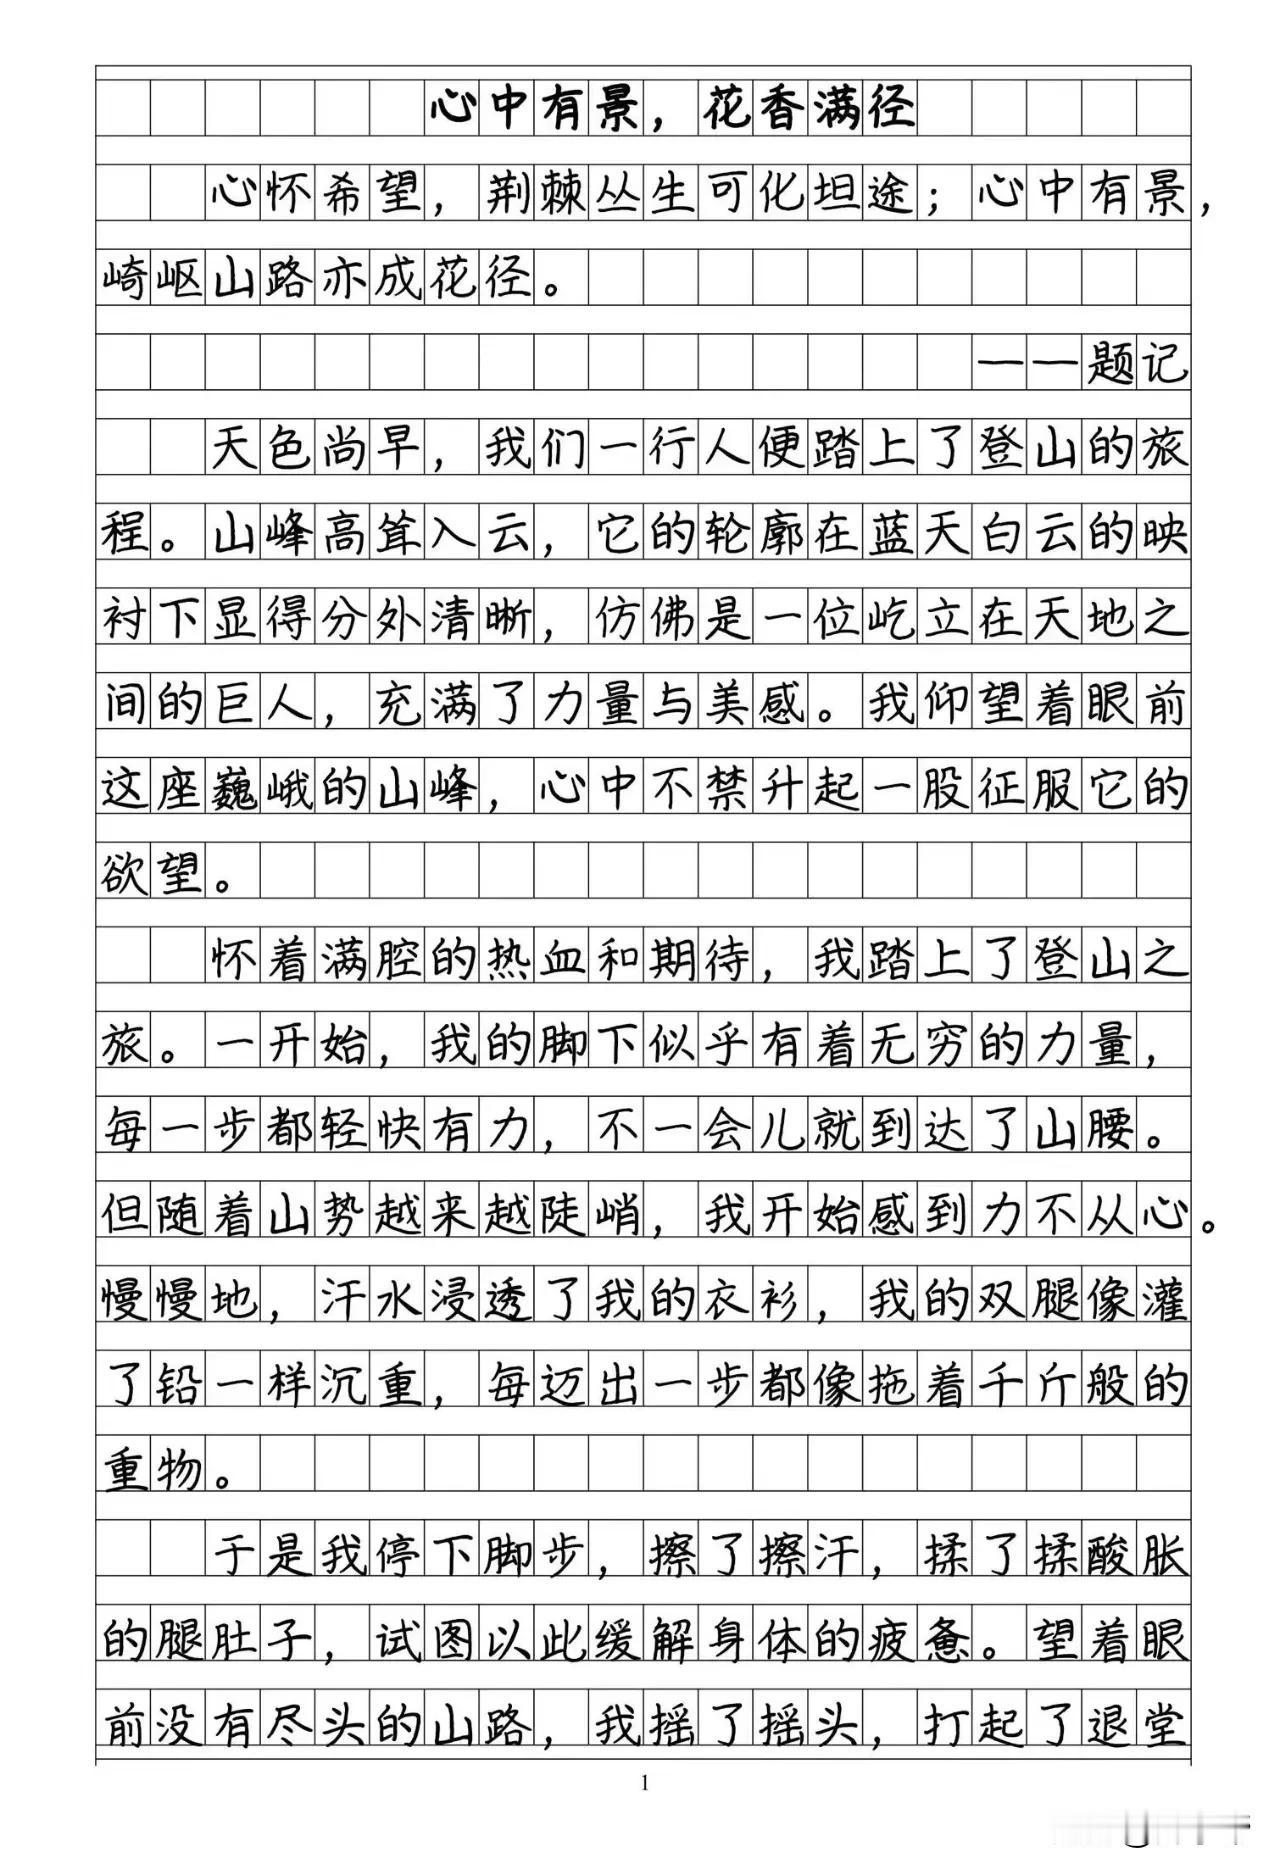 心中有景，花香满径
心怀希望，荆棘丛生可化坦途；心中有景，
崎岖山路亦成花径。
——题记
天色尚早，我们一行人便踏上了登山的旅
程。山峰高耸入云，它的轮廓在蓝天白云的映
衬下显得分外清晰，仿佛是一位屹立在天地之
间的巨人，充满了力量与美感。我仰望着眼前
这座巍峨的山峰，心中不禁升起一股征服它的
欲望。
怀着满腔的热血和期待，我踏上了登山之
旅。一开始，我的脚下似乎有着无穷的力量，
每一步都轻快有力，不一会儿就到达了山腰。
但随着山势越来越陡峭，我开始感到力不从心。
慢慢地，汗水浸透了我的衣衫，我的双腿像灌
了铅一样沉重，每迈出一步都像拖着千斤般的
重物。
于是我停下脚步，擦了擦汗，揉了揉酸胀
的腿肚子，试图以此缓解身体的疲惫。望着眼
前没有尽头的山路，我摇了摇头，打起了退堂
1